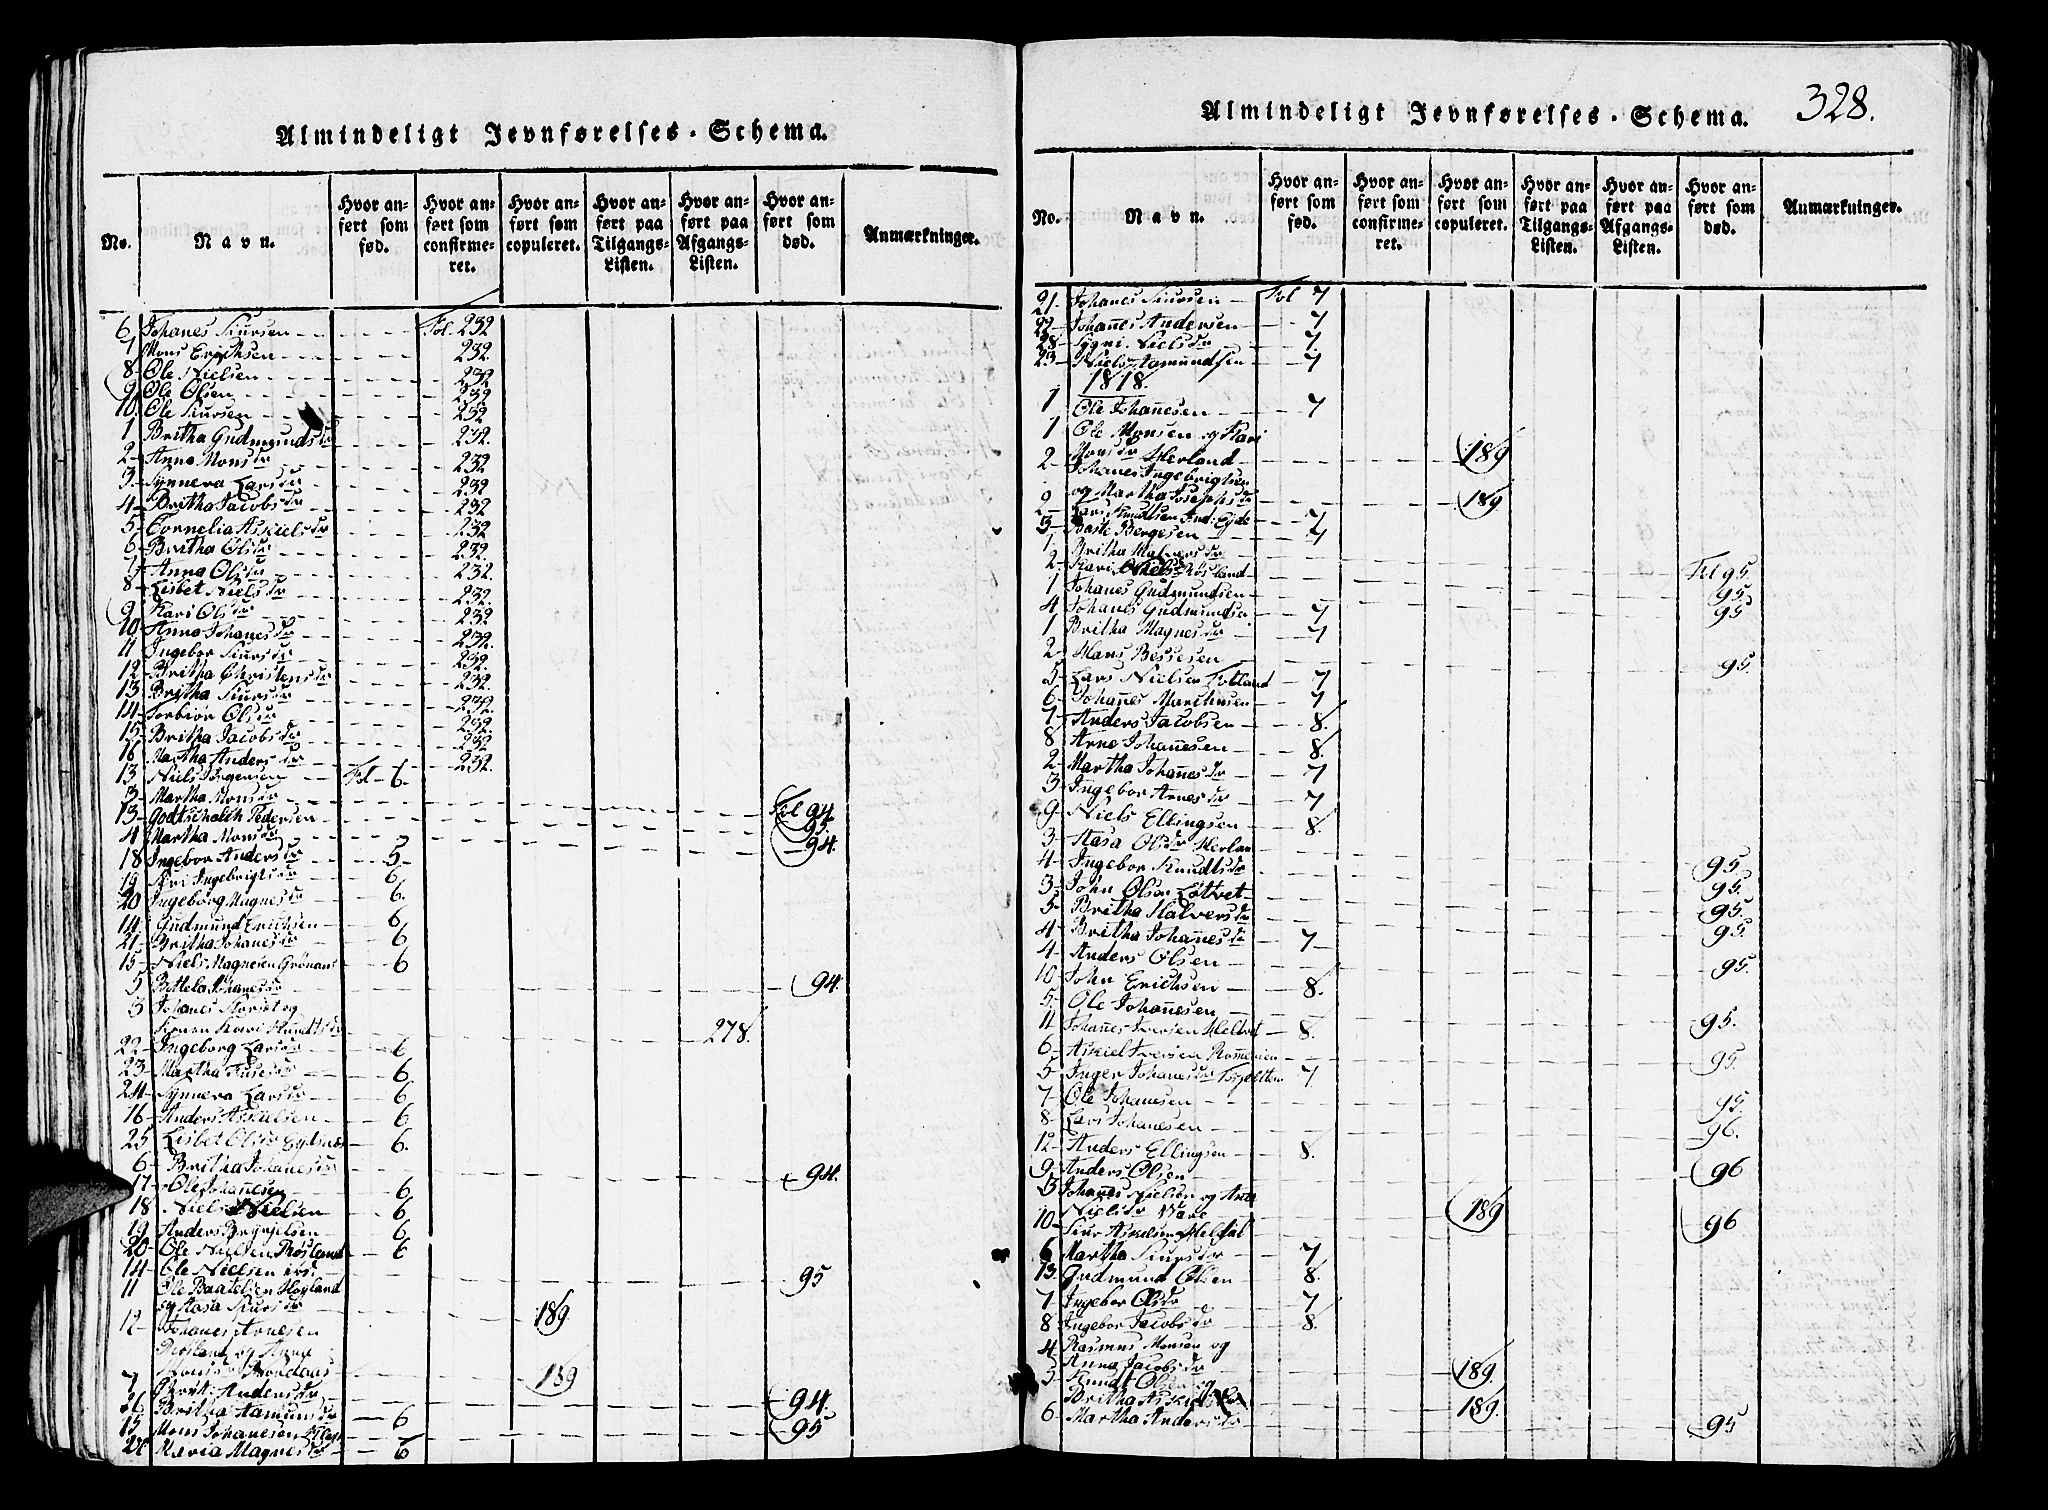 Almindeligt Jevnførelses-Schema.
No.
Navn.
Hvor anført som fød.
Hvor anført som confirmeret.
Hvor anført som copuleret.
Hvor anført paa Tilgangs-Listen.
Hvor anført paa Afgangs-Listen.
Hvor anført som død.
Anmærkninger.
6 Johanes Siursen Fol. 232
7 Mons Erichsen 232.
8 Ole Nielsen 232
9 Ole Olsen 232
10. Ole Siursen 232
1 Britha Gudmundsdr 232.
2 Anna Monsdr 232
3 Synneva Larsdr 232
4 Britha Jacobsdr 232
5 Cornelia Askielsdr 232
6 Britha Olsdr 232.
7 Anna Olsdr 232.
8 Lisbet Nielsdr 232
9 Kari Olsdr 232
10 Anna Johanesdr 232.
11 Ingebor Siursdr 232.
12 Britha Christensdr 232
13 Britha Siursdr 232.
14 Torbiør Olsdr 232
15 Britha Jacobsdr 232
16 Martha Andersdr 232.
13 Niels Jørgensen Fol 6.
3 Martha Monsdr Fol 94
13 Godtschalch Pedersen 95.
4 Martha Monsdr 94.
18 Ingebor Andersdr 5
19 Ingebrigtsdr 6
20 Ingeborg Magnesdr 6.
14 Gudmund Erichsen 6
21 Britha Johanesdr 6
15 Niels Magnesen 6
5 Johanesdr 94.
3 Johanes og
Konen Kari Knudtsdr 278.
22 Ingeborg Larsdr 6
23 Martha 6
24 Synneva Larsdr 6
16 Anders Askielsen 6
25 Lisbet Olsdr 6.
6 Britha Johanesdr 94.
17 Ole Johannesen 6
18 Niels Nielsen 6
19 Anders Brynjelsen 6
20 Ole Nielsen Røsland 6
14 Ole Nielsen ibd: 95
11 Ole Høyland
og Aasa Siursdr 189.
12 Johanes Arnesen
og Anna
Monsdr 189
7 Andersdr 94.
26 Britha Aamundsdr 6
15 Mons Johanesen 95
Maria Magnesdr 6
Almindeligt Jevnførelses-Schema.
328.
No.
Navn.
Hvor anført som fød.
Hvor anført som confirmeret.
Hvor anført som copuleret.
Hvor anført paa Tilgangs-Listen.
Hvor anført paa Afgangs-Listen.
Hvor anført som død.
Anmærkninger.
21 Johanes Siursen Fol 7
22 Johannes Andersen 7
28 Nielsdr 7.
23 Niels Aamundsen 7
1818.
1 Ole Johannesen 7
1 Ole Monsen og Kari
Monsdr Herland 189
2 Johanes Ingebrigtsen
og Martha Josephsdr 189
2 Lars Knudtsen 7
3 Baste Børgesen 7
1 Britha
2 Kari Røsland Fol 95.
1 Johanes Gudmundsen 95
4 Johanes Gudmundsen 7 95
1 Britha Magnesdr 7
2 Hans Bessesen 95.
5 Lars Nielsen Totland 7
6 Johannes Marthusen 7
7 Anders Jacobsen 8.
8 Arne Johannesen 8.
2 Martha Johannesdr 7
3 Ingebor Arnesdr 7
9 Niels Ellingsen 8.
3 Aasa Olsdr 95
4 Ingebor Knudtsdr 95.
3 John Olsen Løtvet 95.
5 Britha Halversdr 95.
4 Britha Johannesdr 7
4 Anders Olsen 95.
10 John Erichsen 8.
5 Ole Johannesen 95.
11 Johannes Iversen 8.
6 Askiel Iversen 95.
5 Inger Johanesdr 7
7 Ole Johanesen 95.
8 Lars Johanesen 96.
12 Anders Ellingsen 8.
9 Anders Olsen 96
3 Johannes Nielsen og
Nielsdr 189
10 Siur Askielsen Heldal 96
6 Martha Siursdr 7
13 Gudmund Olsen 8.
7 Ingebor Olsdr 7
8 Ingebor Jacobsdr 8.
4 Rasmus Monsen og
Anna Jacobsdr 189.
5 Knudt Olsen og
Britha 189.
6 Martha Andersdr 95